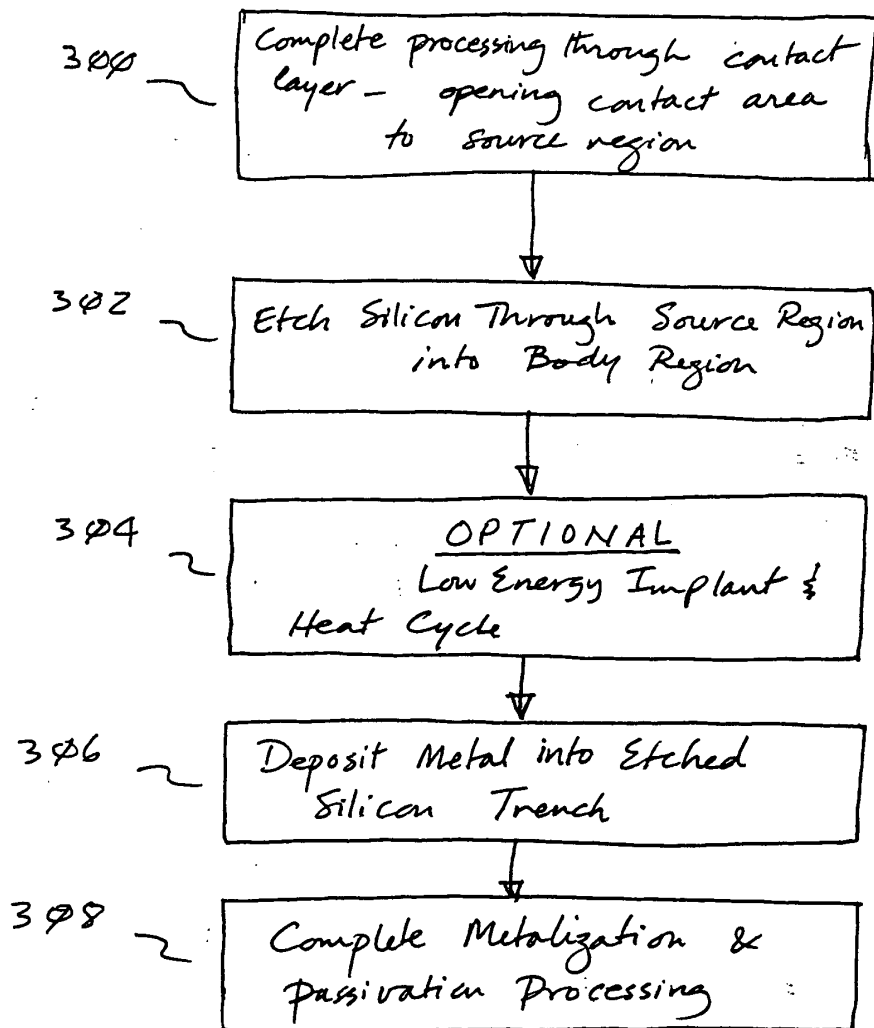 300
Complete processing through contact
layer - opening contact area
to source region
302
Etch Silicon Through Source Region
into Body Region
304
OPTIONAL
Low Energy Implant &
Heat Cycle
306
Deposit Metal into Etched
Silicon Trench
308
Complete Metalization &
Passivation Processing